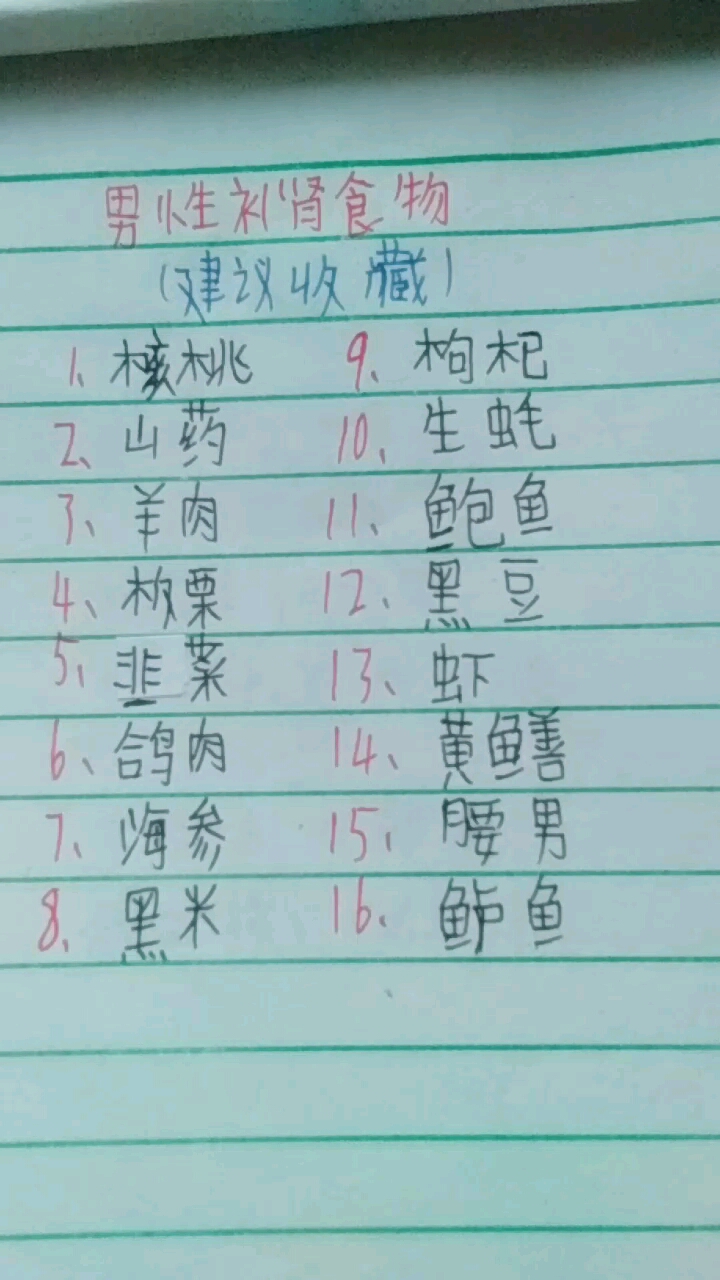 男性补肾食物
(建议收藏)
1、核桃
2、山药
3、羊肉
4、板栗
5、韭菜
6、鸽肉
7、海参
8、黑米
9、枸杞
10、生蚝
11、鲍鱼
12、黑豆
13、虾
14、黄鳝
15、腰男
16、鲈鱼